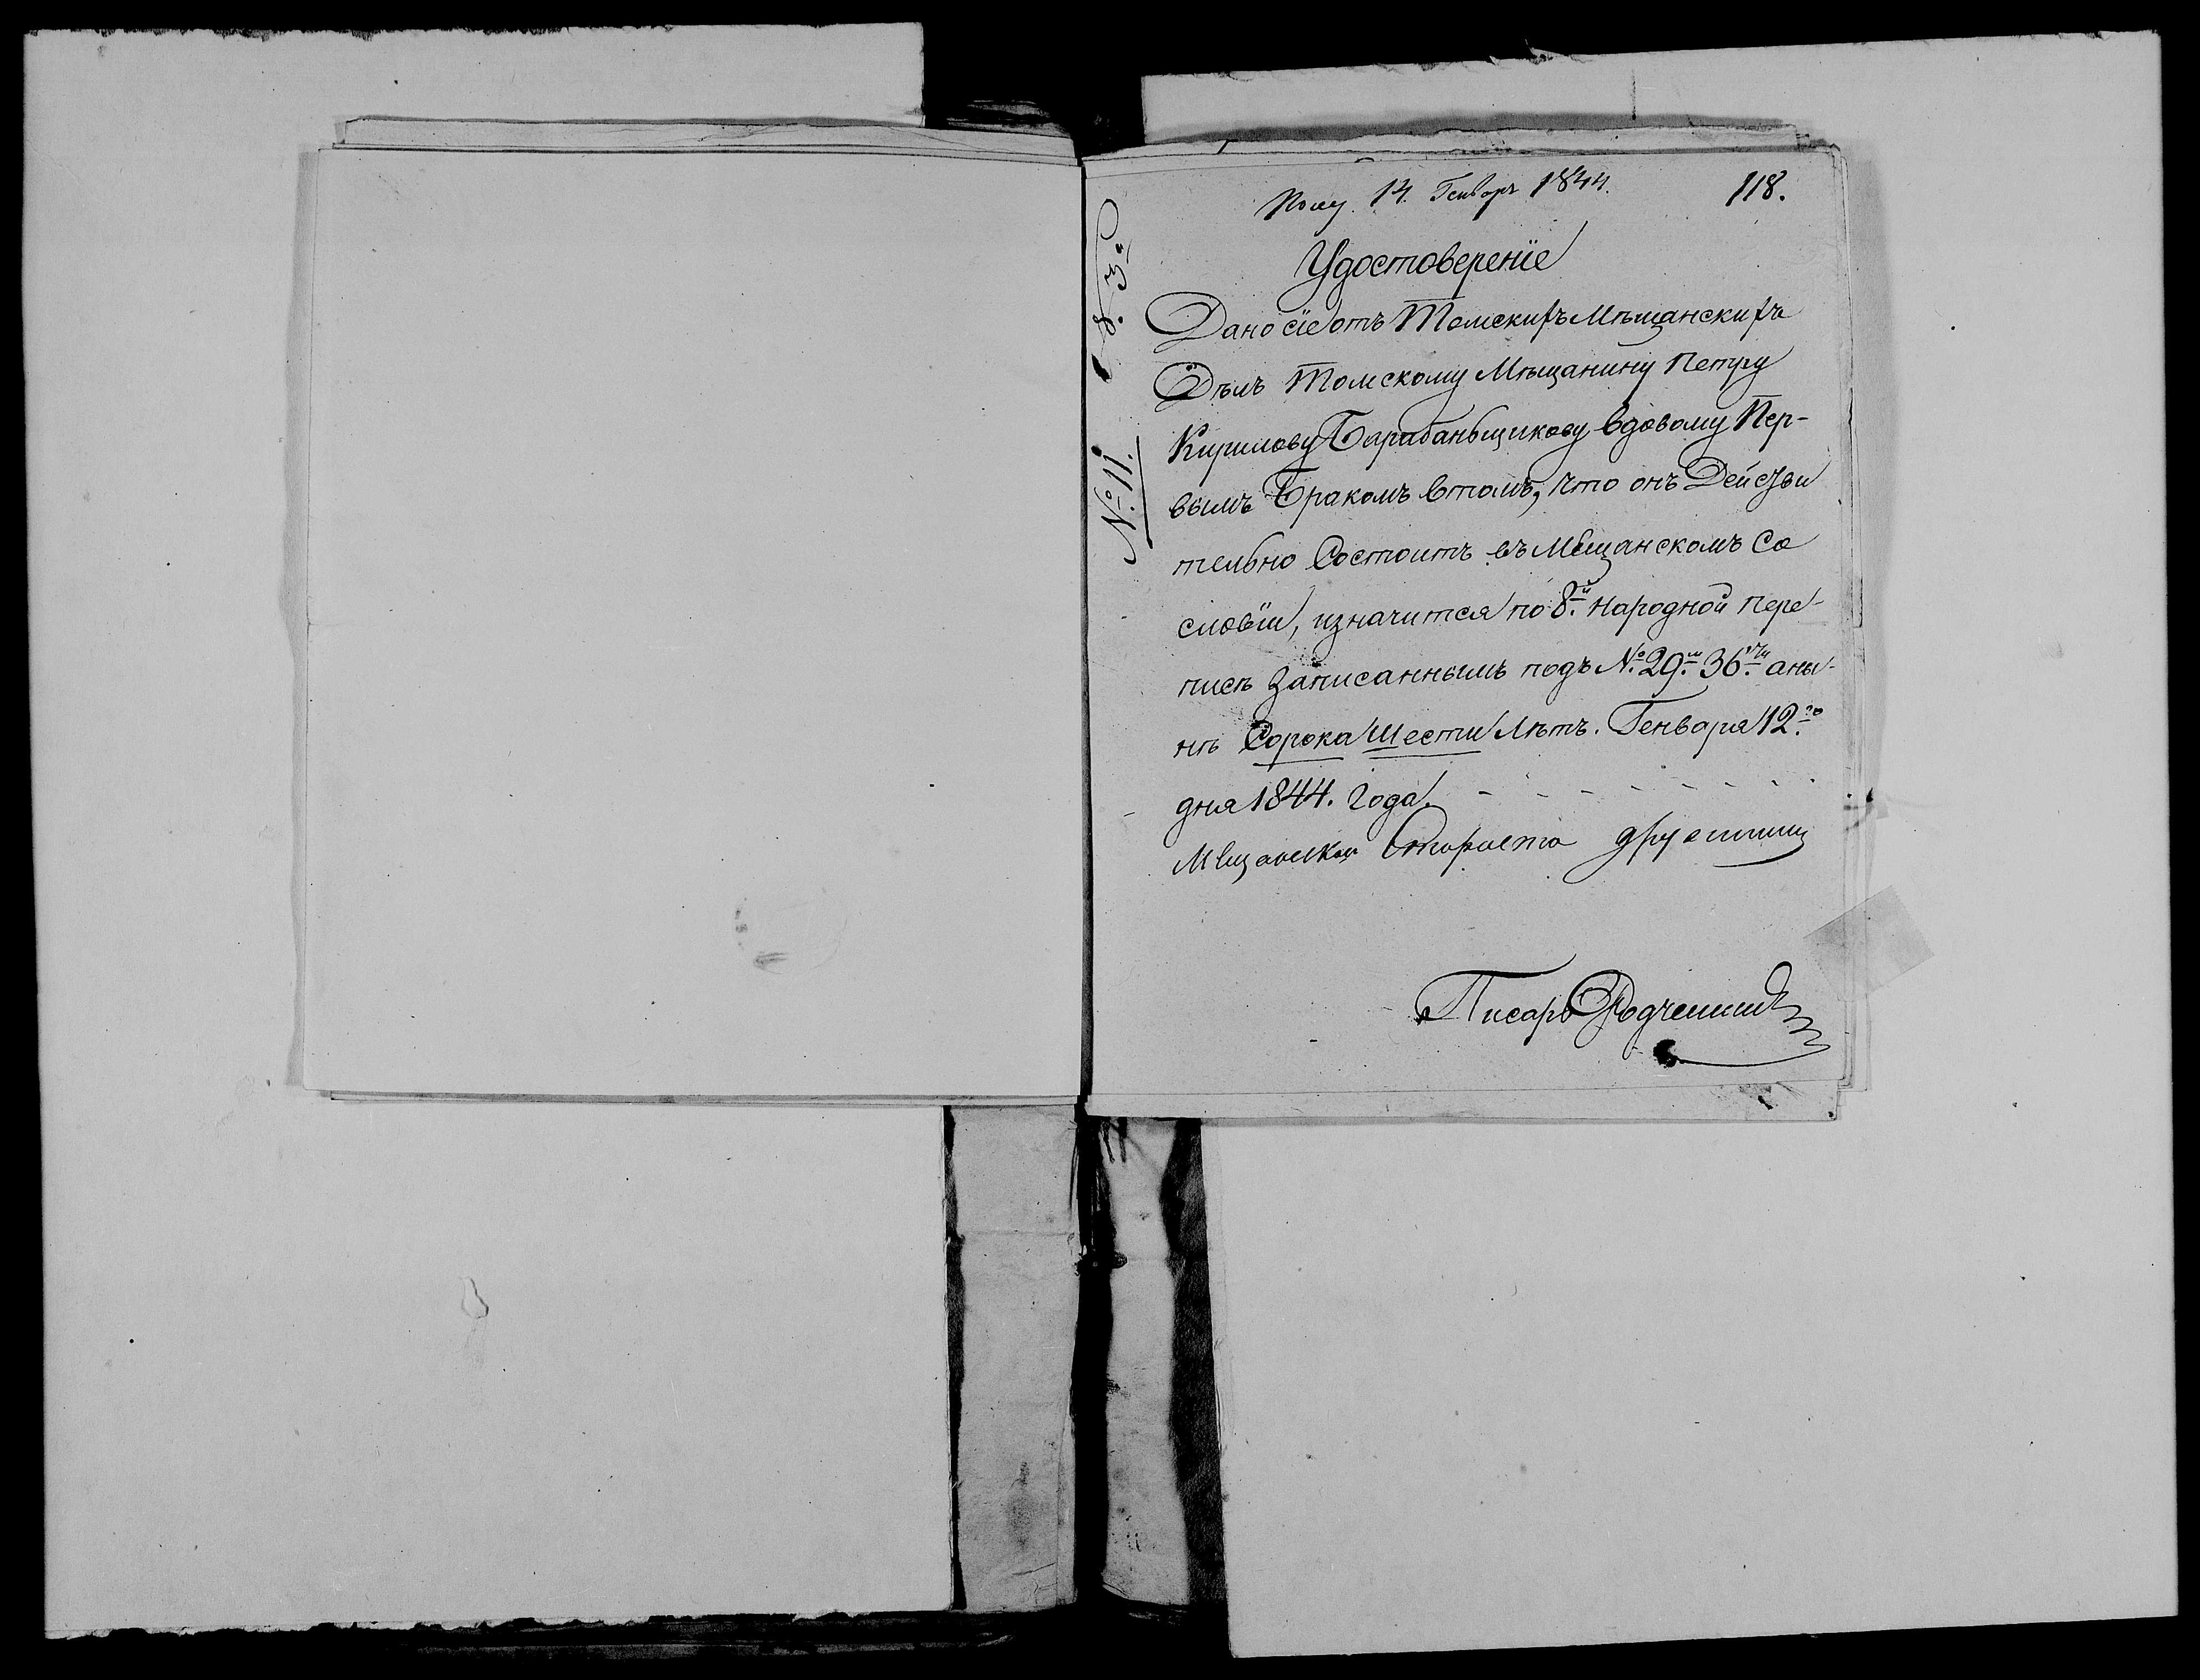 Полу. 14. Генваря 1844. 118.
Удостоверенїе
Дано сїе отъ Томскихъ Мѣщанскихъ
Дѣлъ Томскому Мѣщанину Петру
Кирилову Барабаньщикову вдовому Пер-
вымъ Бракомъ втомъ, что онъ Действи
тельно Состоитъ въ Мещанскомъ Со
словїи, изначится по 8.й Народной пере-
писѣ записаннымъ подъ № 29.м 36.ти аны-
нѣ Сорока Шести Лѣтъ. Генваря 12.го
дня 1844. Года.
Мещанскои Староста
Писарь Родченинъ
№ 11.